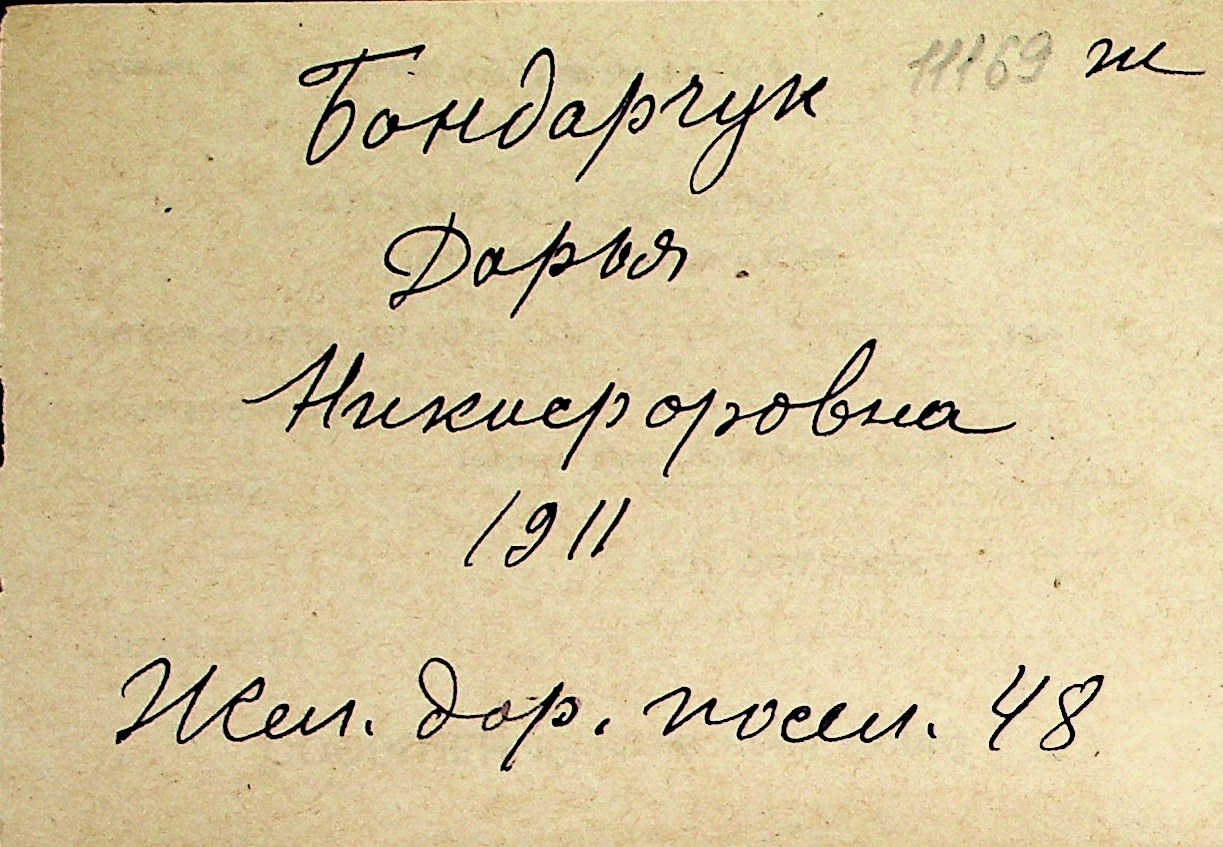 Бондарчук 11169 ж
Дарья
Никифоровна
1911
Жел. дор. посел. 48